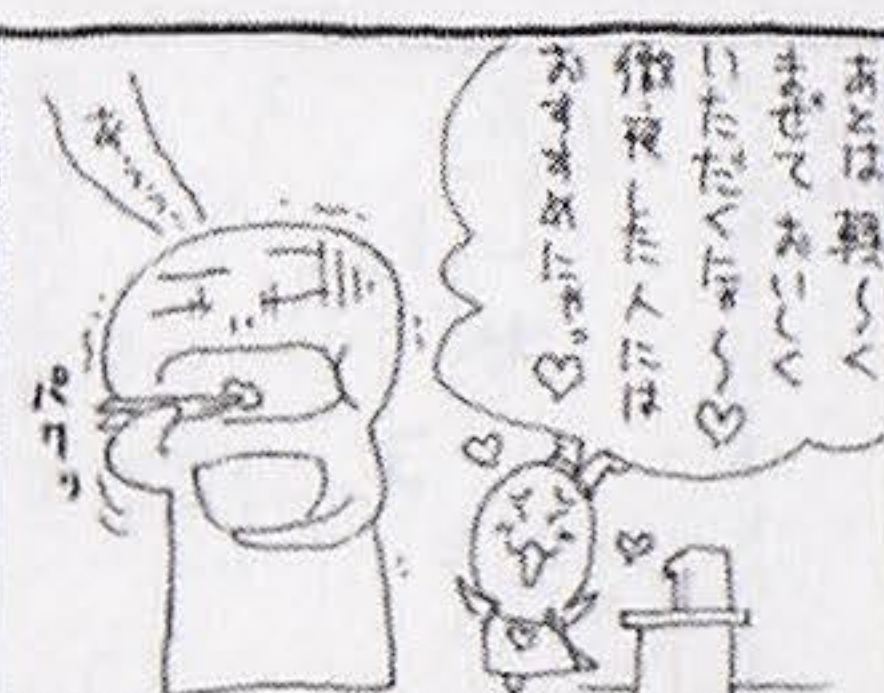 あとは軽〜く
まぜておいしく
いただくにょ〜♡
徹夜した人には
おすすめにょ♡
パクッ